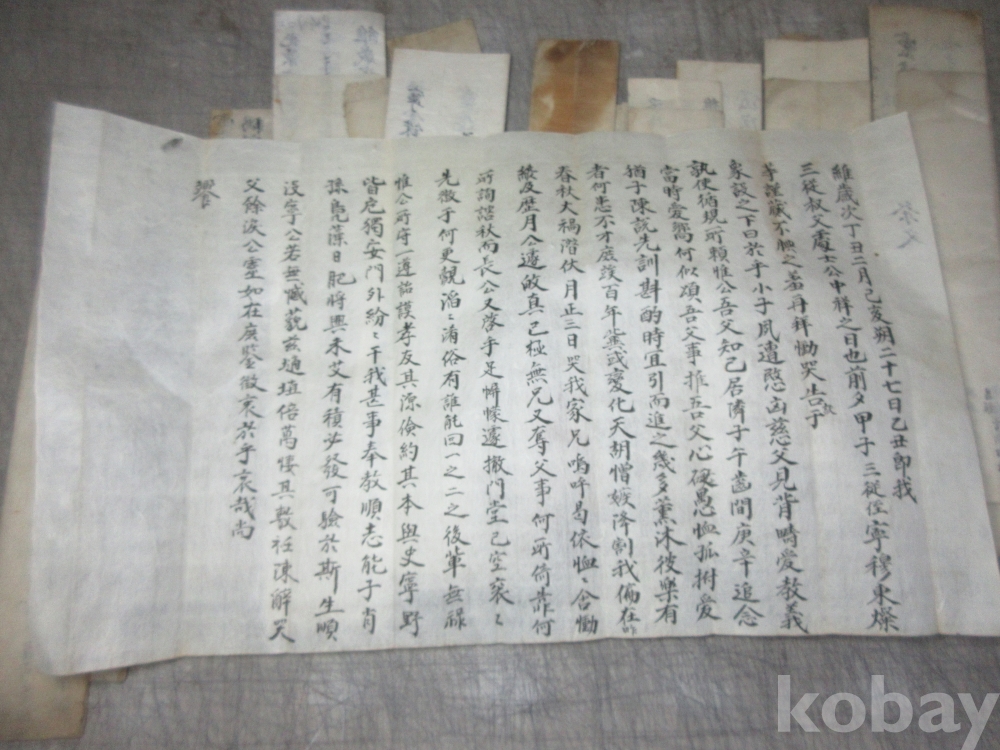 祭文
維歲次丁丑二月己亥朔二十七日乙丑卽我
三從叔父處士公中祥之日也前夕甲子三從侄寧穆東燦
等謹薦不腆之羞再拜慟哭告于
象設之下曰於乎小子夙遭愍凶慈父見背疇愛敎義
孰使循現所賴惟公吾父知己居隣子午齒間庚辛追念
當時愛嚮何似項吾父事推吾父心碌愚恤孤拊愛
猶子陳說先訓斟酌時宜引而進之幾多薰沐彼樂有
者何患不才庶後百年無或變化天胡憎嫉降割我倆在昨
春秋大禍潛伏月正三日哭我家兄嗚呼曷依恤恤含慟
歷月公遽啟眞已極無兄又奪父事何所倚靠何
所詢諮秋而長公又啓手足幈幪遽撤門堂已空哀哀
先徽于何更覩滔滔淆俗有誰能回一之二之後輩無祿
惟公所守一遵詒謨孝友其源儉約其本與史寧野
皆危獨安門外紛紛干我甚事奉敎順志能子肖
孫鳧藻日肥將興未艾有積必發可驗於斯生順
沒寧公若無憾
父餘淚公靈如在庶鑒微哀於乎哀哉尙
饗
kobay